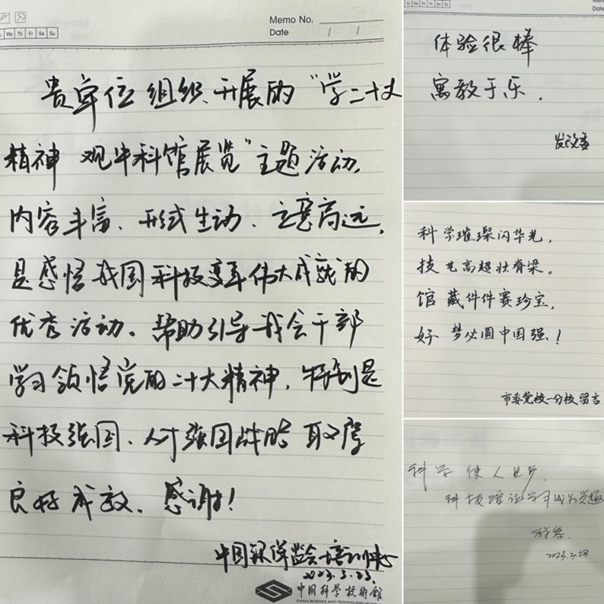 Memo No.
Date / /
We Th Fr Sa Su
贵单位组织开展的“学二十大
精神 观中科馆展览”主题活动,
内容丰富、形式生动、立意高远,
是感悟我国科技变革伟大成就的
优秀活动。帮助引导我会干部
学习领悟党的二十大精神,特别是
科技强国、人才强国战略取得
良好成效。感谢!
中国银保监会培训中心
2023.3.23.
中国科学技术馆
体验很棒
寓教于乐.
发改委
科学璀璨闪华光,
技艺高超壮脊梁。
馆藏件件赛珍宝,
好梦必圆中国强!
市委党校一分校留言
科学使人进步
科技馆让学习成为兴趣
游客
2023.3.28